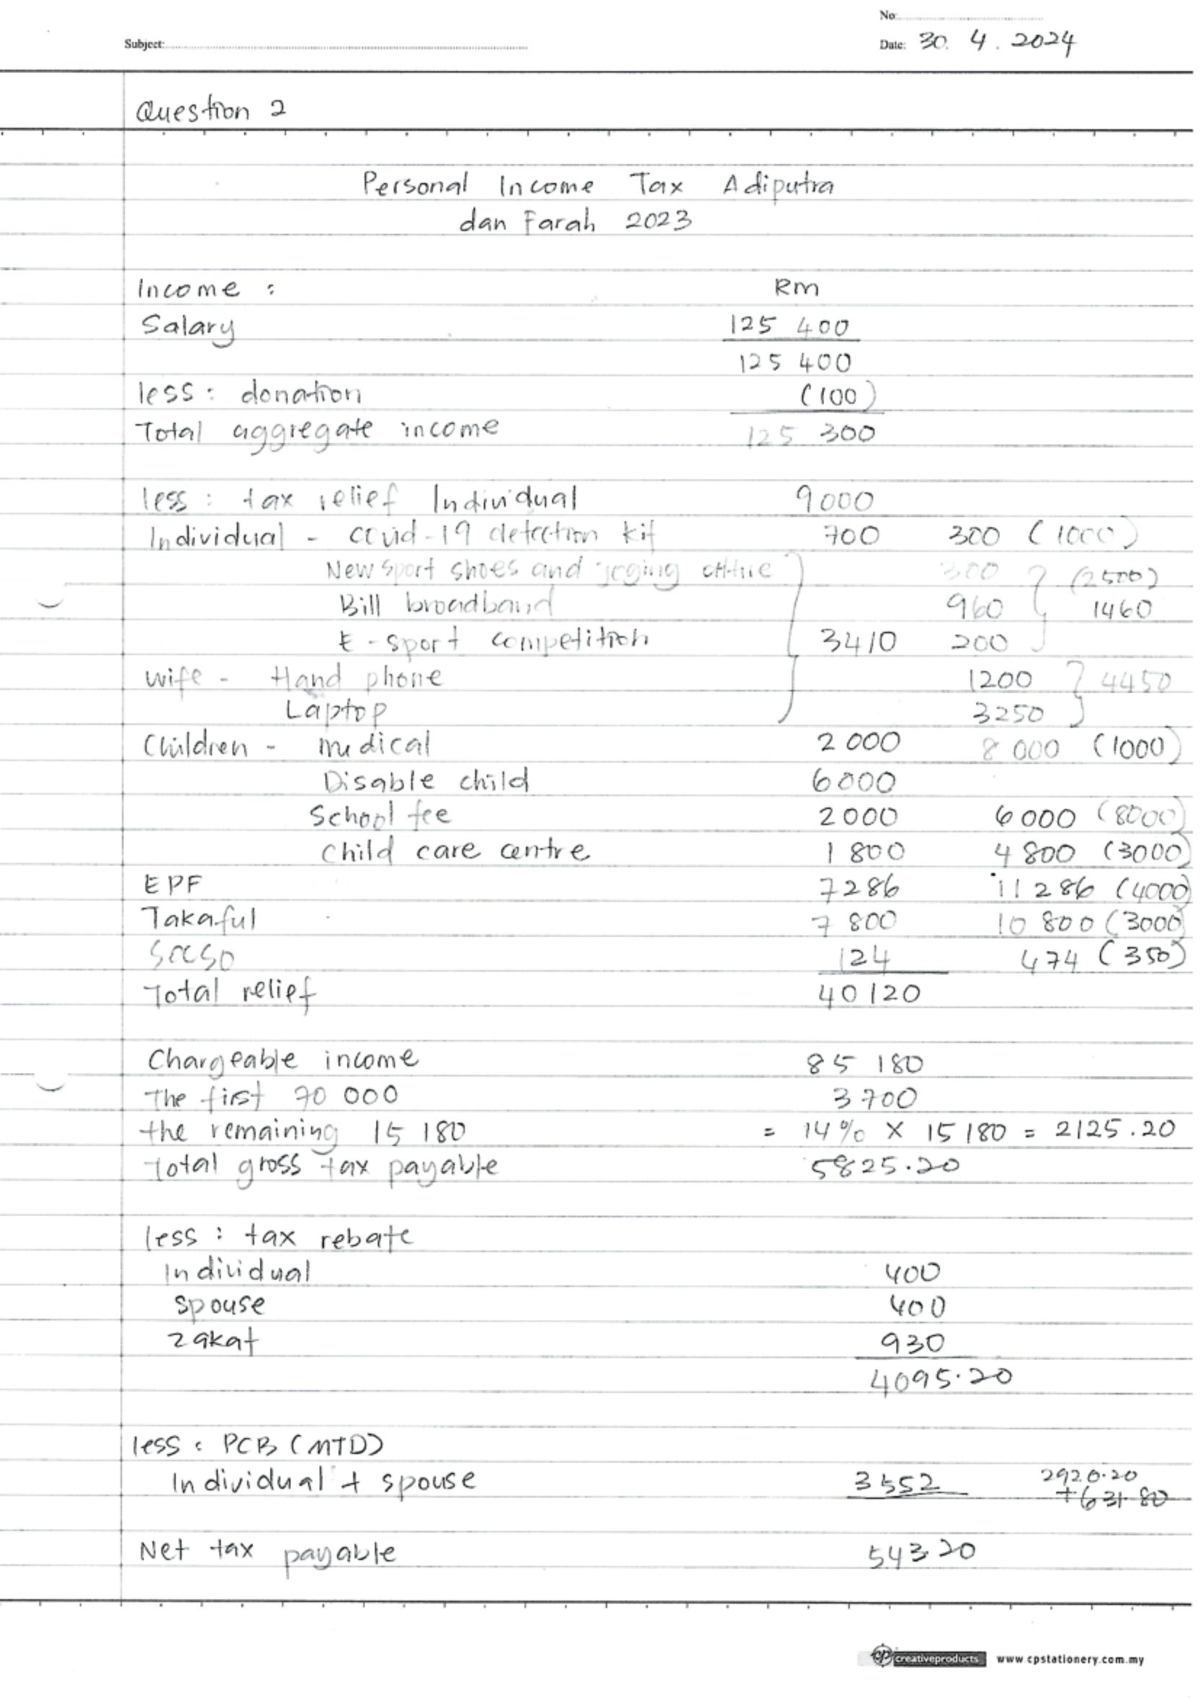 No:
Subject: Date: 30. 4. 2024
Question 2
Personal Income Tax Adiputra
dan Farah 2023
Income : Rm
Salary 125 400
125 400
less : donation (100)
Total aggregate income 125 300
less : tax relief Individual 9000
Individual - covid-19 detection kit 700 300 (1000)
New sport shoes and joging attire 300 (2500)
Bill broadband 960 1460
E-sport competition 3410 200
wife - Hand phone 1200 4450
Laptop 3250
Children - medical 2000 8000 (1000)
Disable child 6000
School fee 2000 6000 (8000)
Child care centre 1800 4800 (3000)
EPF 7286 11286 (4000)
Takaful 7800 10800 (3000)
SOCSO 124 474 (350)
Total relief 40120
Chargeable income 85 180
The first 70 000 3700
the remaining 15 180 = 14% X 15180 = 2125.20
Total gross tax payable 5825.20
less : tax rebate
Individual 400
spouse 400
zakat 930
4095.20
less : PCB (MTD)
Individual + spouse 3552 2920.20
+631.80
Net tax payable 543.20
cp creativeproducts www.cpstationery.com.my